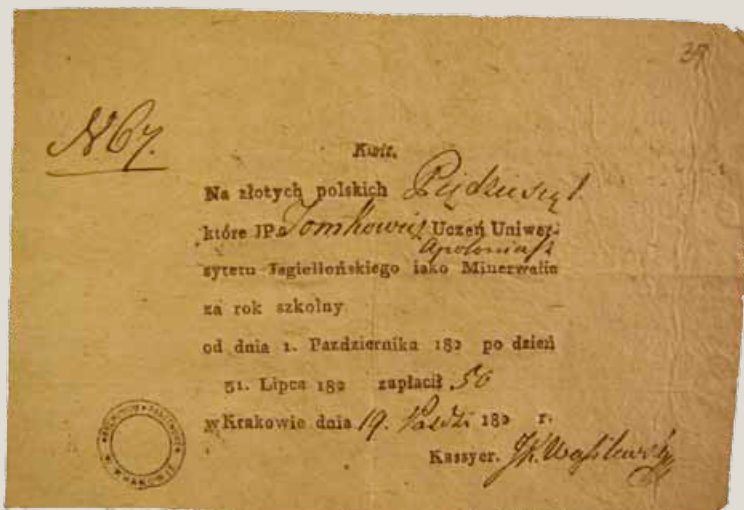 37
N 67.
Kwit.
Na złotych polskich Piędziesiąt
które JP. Tomkowicz Uczeń Uniwer-
Apoloniusz
sytetu Jagiellońskiego iako Minerwalia
za rok szkolny
od dnia 1. Pazdziernika 182 po dzień
31. Lipca 182 zapłacił 50
w Krakowie dnia 19. Paźdź 182 r.
Kassyer. JK. Wasilewski
W KRAKOWIE